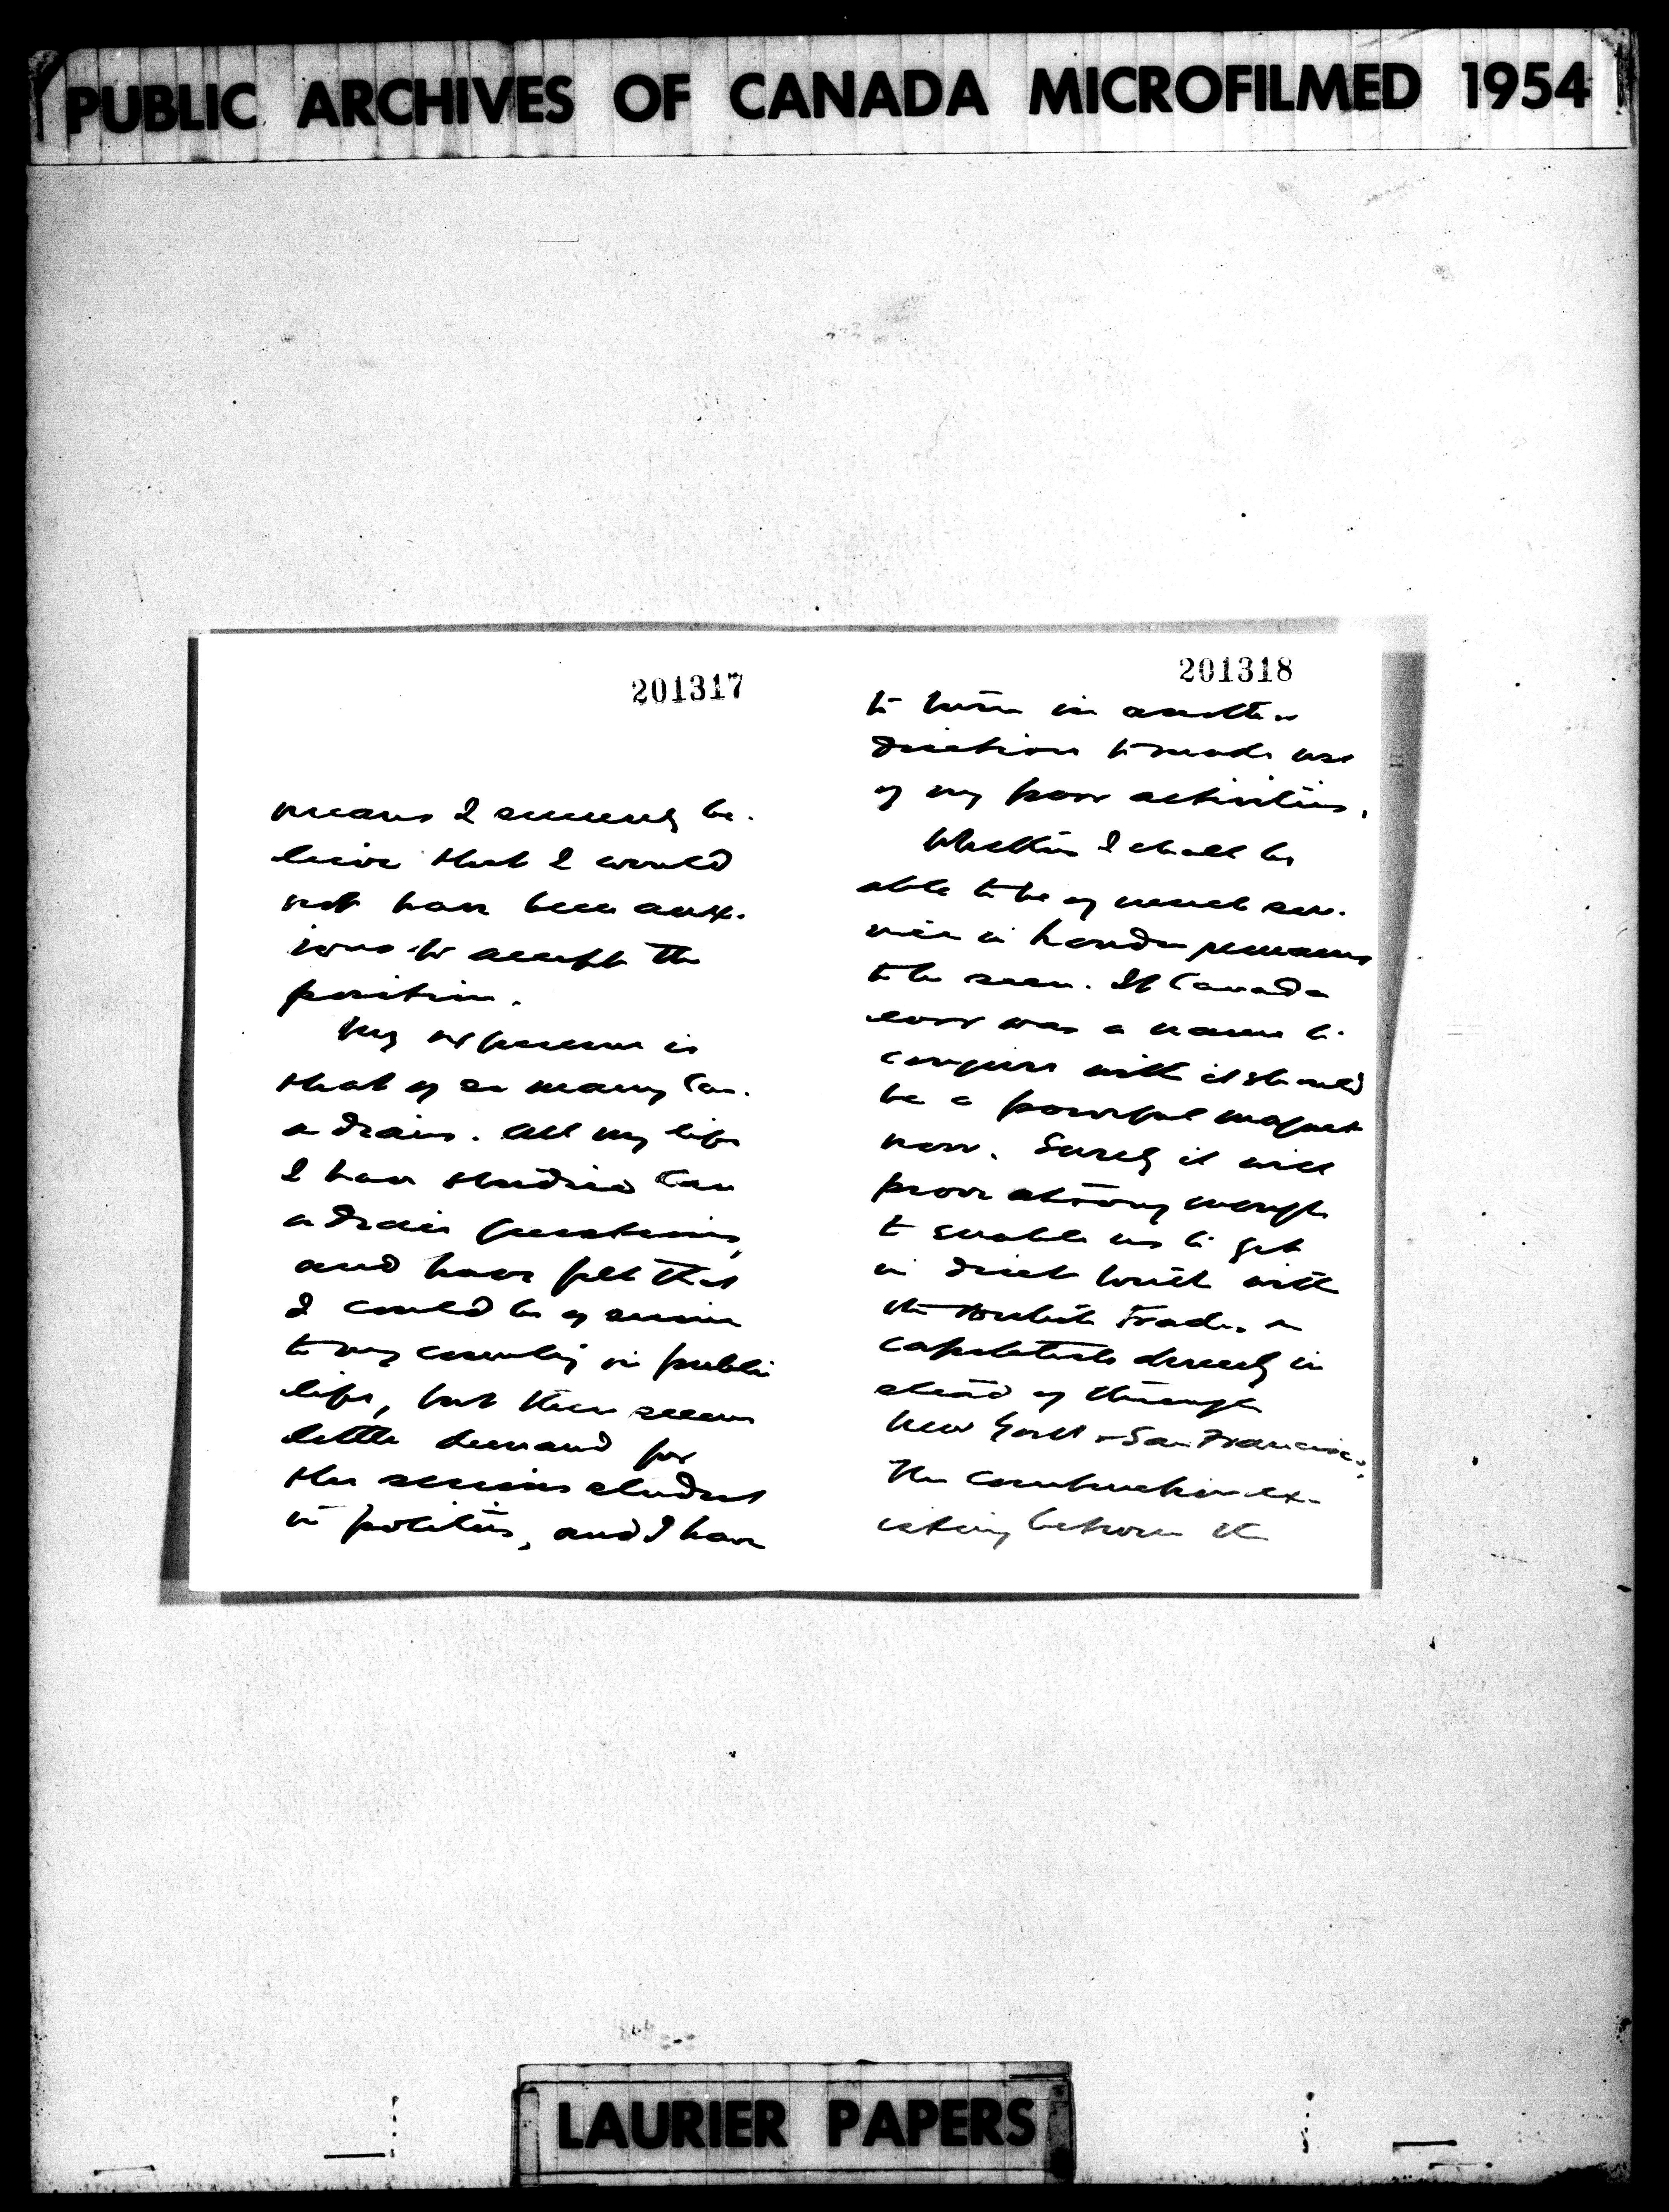 PUBLIC ARCHIVES OF CANADA MICROFILMED 1954
201317
means I sincerely be-
lieve that I would
not have been anx-
ious to accept the
position.
My experience is
that of so many Can-
adians. All my life
I have studied Can
adian questions,
and have felt that
I could be of service
to my country in public
life, but there seems
little demand for
the serious student
in politics, and I have
201318
to turn in another
direction to make use
of my poor activities.
Whether I shall be
able to be of much ser-
vice in London remains
to be seen. If Canada
ever was a name to
conjure with it should
be a powerful magnet
now. Surely it will
prove strong enough
to enable us to get
in direct touch with
the British trader &
capitalists directly in
stead of through
New York & San Francisco.
The connection ex-
isting between the
LAURIER PAPERS